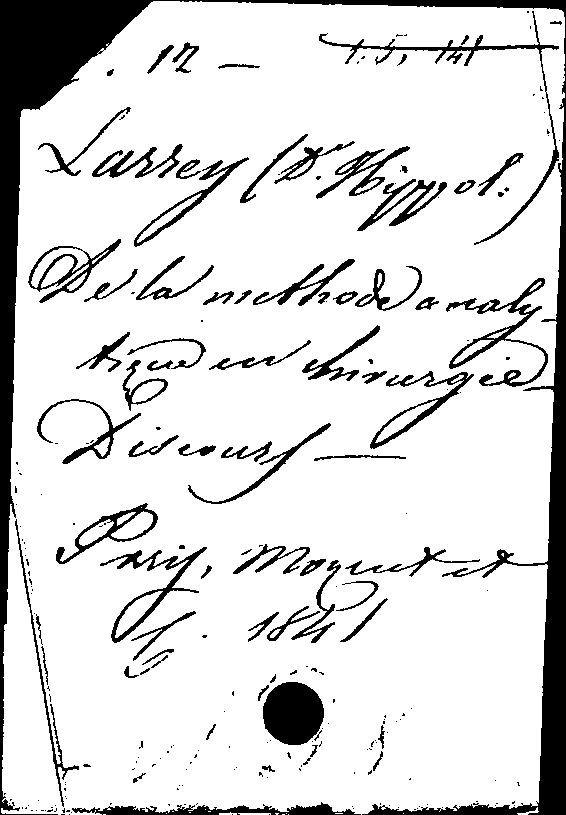 . 12 — 1.5, 141
Larrey (Dr. Hippol.)
De la méthode analy-
tique en chirurgie_
Discours —
Paris, Moquet et
1841